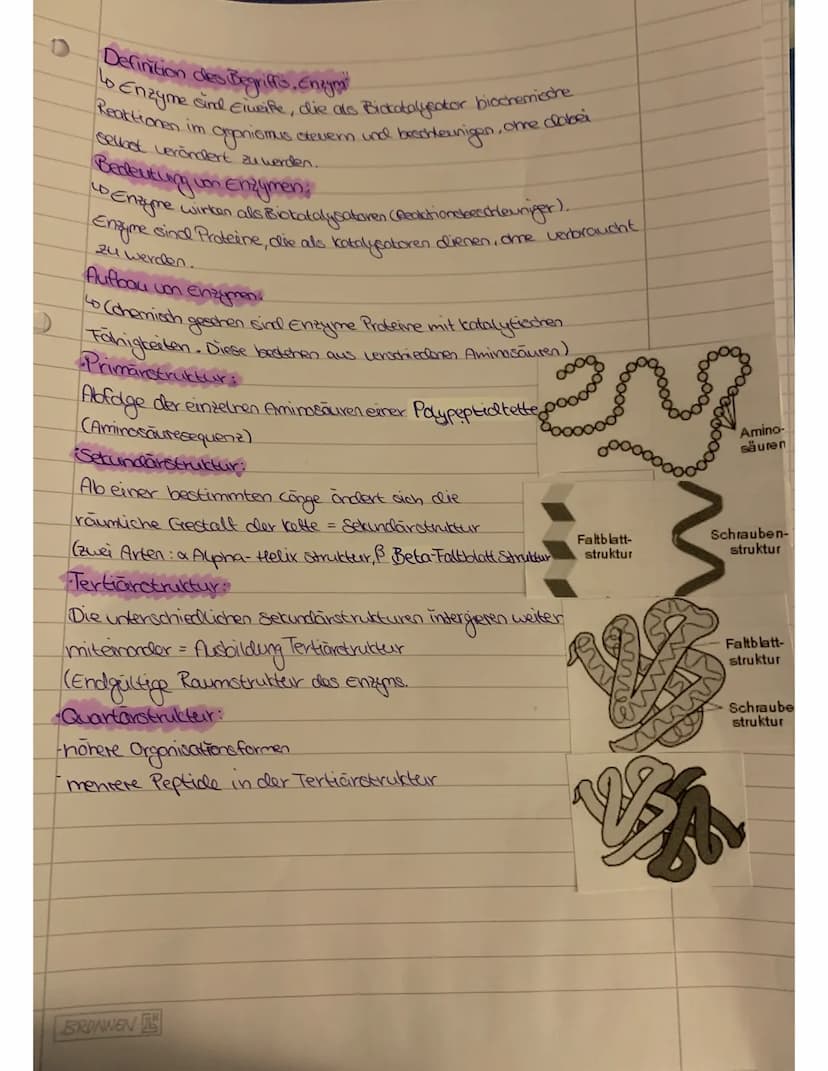 Definition des Begriffs "Enzym"
↳ Enzyme sind Eiweiße, die als Biokatalysator biochemische
Reaktionen im Organismus steuern und beschleunigen, ohne dabei
selbst verändert zu werden.
Bedeutung von Enzymen:
↳ Enzyme wirken als Biokatalysatoren (Reaktionsbeschleuniger).
Enzyme sind Proteine, die als Katalysatoren dienen, ohne verbraucht
zu werden.
Aufbau von Enzymen:
↳ (Chemisch gesehen sind Enzyme Proteine mit katalytischen
Fähigkeiten. Diese bestehen aus verschiedenen Aminosäuren)
·Primärstruktur:
Abfolge der einzelnen Aminosäuren einer Polypeptidkette
(Aminosäuresequenz)
Amino-
säuren
·Sekundärstruktur:
Ab einer bestimmten Länge ändert sich die
räumliche Gestalt der Kette = Sekundärstruktur
(zwei Arten: α Alpha-Helix Struktur, β Beta-Faltblatt Struktur
Faltblatt-
struktur
Schrauben-
struktur
·Tertiärstruktur:
Die unterschiedlichen Sekundärstrukturen intergieren weiter
miteinander = Ausbildung Tertiärstruktur
(Endgültige Raumstruktur des Enzyms.
Faltblatt-
struktur
Schraube
struktur
·Quartärstruktur:
-höhere Organisationsformen
-mehrere Peptide in der Tertiärstruktur
BRUNNEN